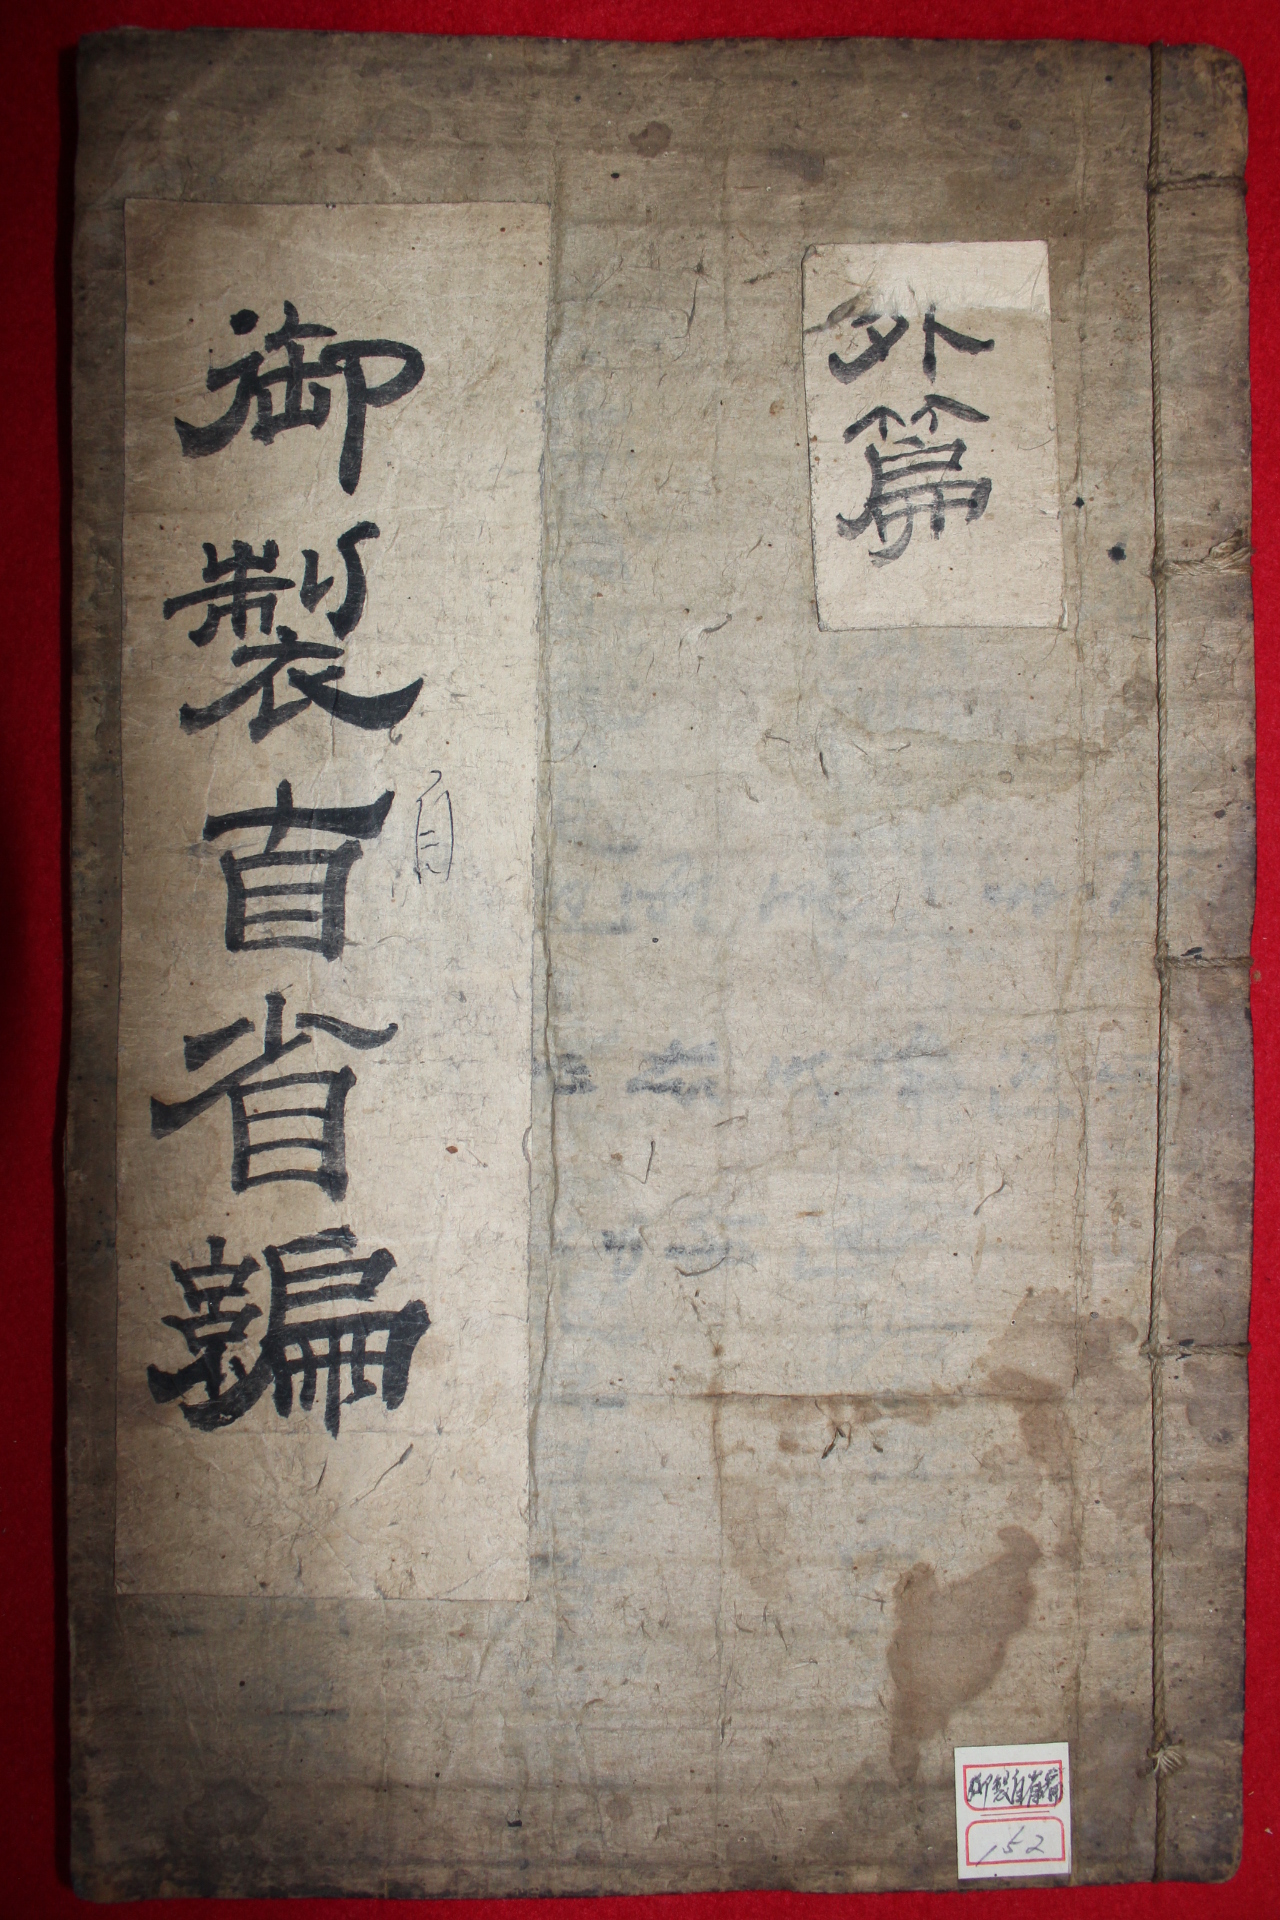 外篇
御製自省編
自
御製自省篇
152